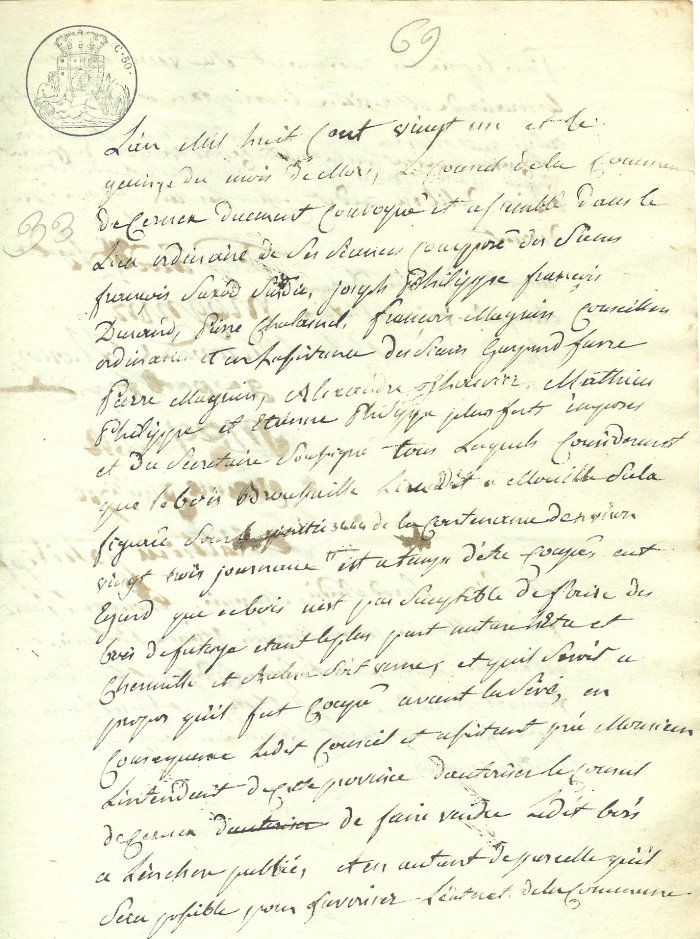 69
C. 50.
L'an Mil huit Cent vingt un et le
quinze du mois de Mars, le Conseil de la Commune
de Cernex duement Convoqué et assemblé dans le
Lieu ordinaire de ses séances Composé des Sieurs
33
françois Sindic, joseph Philippe françois
Durand, Pierre Chalamel, françois Magnin Conseillers
ordinaires et en Lassistance des Sieurs favre
Pierre Magnin, Alexandre Mathieu
Philippe et Etienne Philippe plus forts imposés
et du Secretaire Soussigné tous Lesquels Considerant
que le bois Broussaille Lieu dit a Mouille
figurée Sous de la Contenance d'environ
vingt trois journaux est a temps d'être Coupés eut
Egard que ce bois n'est pas Suseptible de faire des
bois de futaye etant le plus part nature et
Chenille et soit verne, et qu'il Seroit a
propos qu'il fut Coupé avant la Séve, en
Consequence Ledit Conseil et assistant prie Monsieur
Lintendant de Cette province d'autoriser le Conseil
de Cernex d'autoriser de faire vendre Ledit bois
a Lenchere publié, et en autant de parcelle qu'il
Sera possible pour favoriser L'interet de la Commune